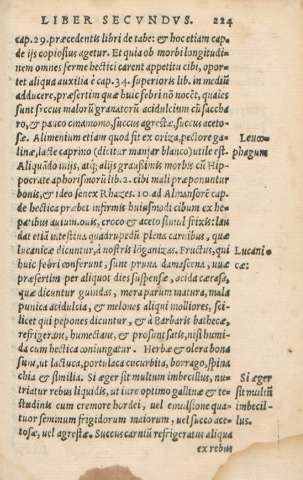 LIBER SECVNDVS. 224
cap. 29. præcedentis libri de tabe: & hoc etiam cap.
de ijs copiosius agetur. Et quia ob morbi longitudi-
nem omnes ferme hectici carent appetitu cibi, opor-
tet aliqua auxilia è cap. 34. superioris lib. in mediũ
adducere, præsertim quæ huic febri nõ nocẽt, quales
sunt succus malorũ granatorũ acidulcium cũ saccha
ro, & pauco cinamomo, succus agrestæ, succus aceto-
sæ. Alimenium etiam quod fit ex oriza, pectore ga-
linæ, lacte caprino (dicitur manjar blanco) utile est.
Leucο⸗
phagum
Aliquãdo iuijs, atq; alijs grauissimis morbis cũ Hip-
pocrate aphorismorũ lib. 2. cibi mali præponuntur
bonis, & ideo senex Rhazes. 10. ad Almansorẽ cap.
de hectica præbet infirmis huiusmodi cibum ex he-
patibus auium. ouis, croco & aceto simul frixis: lau
dat etiã intestina quadrupedũ plena carnibus, quæ
lucanicæ dicuntur, à nostris lõganizas. Fructus, qui
Lucani⸗
cæ:
huic febri conferunt, sunt pruna damascena, uuæ
præsertim per aliquot dies suspensæ, acida cærasa,
quæ dicuntur guindas, mora parum matura, mala
punica acidulcia, & melones aliqui molliores, sci-
licet qui pepones dicuntur, & à Barbaris bathecæ,
refrigerant, humectant, & prosunt satis, nisi humi-
da cum hectica coniungatur. Herbæ & olera bona
sunt, ut lactuca, portulaca cucurbita, borrago, spina
chia & similia. Si æger sit multum imbecillus, nu-
Si æger
sit multũ
imbecil-
lus.
triatur rebus liquidis, ut iure optimo gallinæ & te-
studinis cum cremore hordei, uel emulsione qua-
tuor seminum frigidorum maiorum, uel succo ace-
tosæ, uel agrestæ. Succus carniũ refrigeratus aliqua
ex rebus